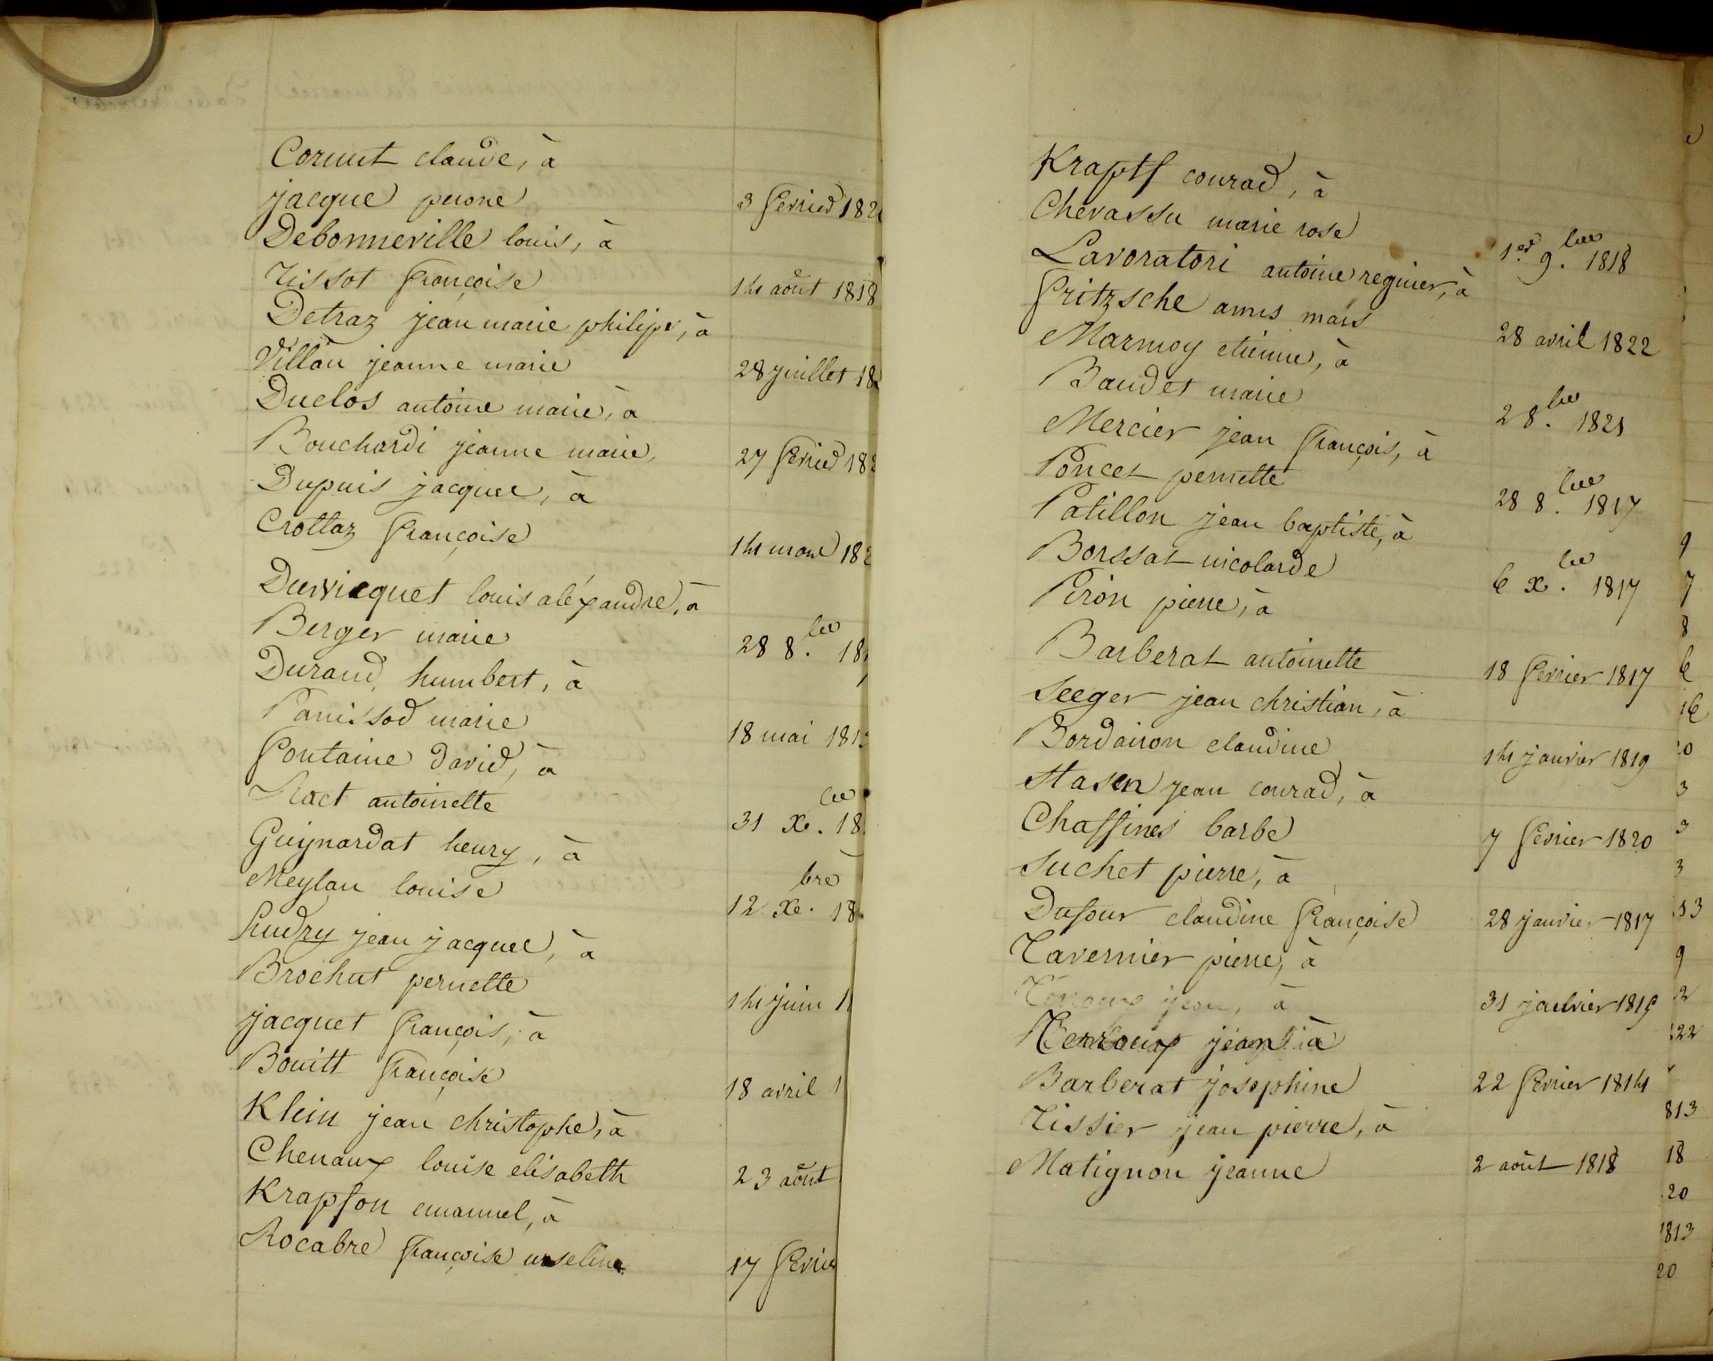 Cornut claude, à
jacque perone 3 fevrier 182
Debonneville louis, à
Tissot françoise 14 août 1818
Detraz jean marie philipe, à
Villan jeanne marie 28 juillet 18
Duclos antoine marie, à
Bouchardi jeanne marie, 27 fevrier 182
Dupuis jacque, à
Crottaz françoise 14 mars 182
Durvicquet louis aléxandre, à
Berger marie 28 8.bre 18
Durand, humbert, à
Panissod marie 18 mai 181
fontaine david, à
Ract antoinette 31 Xe.bre 18
Guignardat henry, à
Meylan louise 12 Xe.bre 18
Audry jean jacques, à
Brochut pernette 14 juin 1
jacquet françois, à
Bouitt françoise 18 avril 1
Klein jean christophe, à
Chenaux louise elisabeth 23 août
Krapfon emanuel, à
Rocabre françoise urseline 17 fevrie
Kraptf conrad, à
Chevassu marie rose 1er 9.bre 1818
Lavoratori antoine regnier, à
fritzsche 28 avril 1822
Marmoy etienne, à
Baudet marie 2 8.bre 1821
Mercier jean françois, à
Poncet pernette 28 8.bre 1817
Patillon jean baptiste, à
Borssat nicolarde 6 X.bre 1817
Piron pierre, à
Barberat antoinette 18 fevrier 1817
Seeger jean christian, à
Bordairon claudine 14 janvier 1819
Stasen jean conrad, à
Chaffines barbe 7 fevrier 1820
Suchet pierre, à
Dufour claudine françoise 28 janvier 1817
Tavernier pierre, à
31 janvier 1819
Terroux jean, à
Barberat josephine 22 fevrier 1814
Tissier jean pierre, à
Matignon jeanne 2 août 1818
9
7
8
6
16
20
3
3
3
13
9
2
22
813
18
20
1813
20